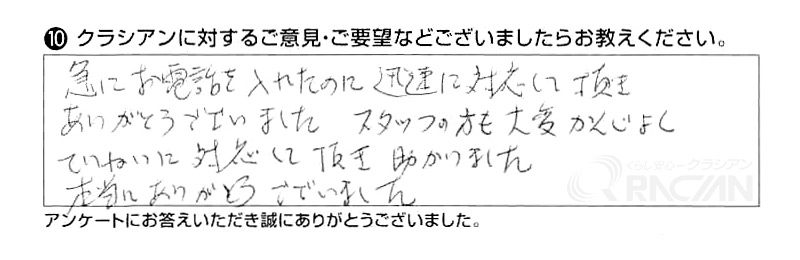 ⑩ クラシアンに対するご意見・ご要望などございましたらお教えください。
急にお電話を入れたのに迅速に対応して頂き
ありがとうございました スタッフの方も大変かんじよし
ていねいに対応して頂き助かりました
本当にありがとうございました
くらし安心クラシアン
QRACIAN
アンケートにお答えいただき誠にありがとうございました。